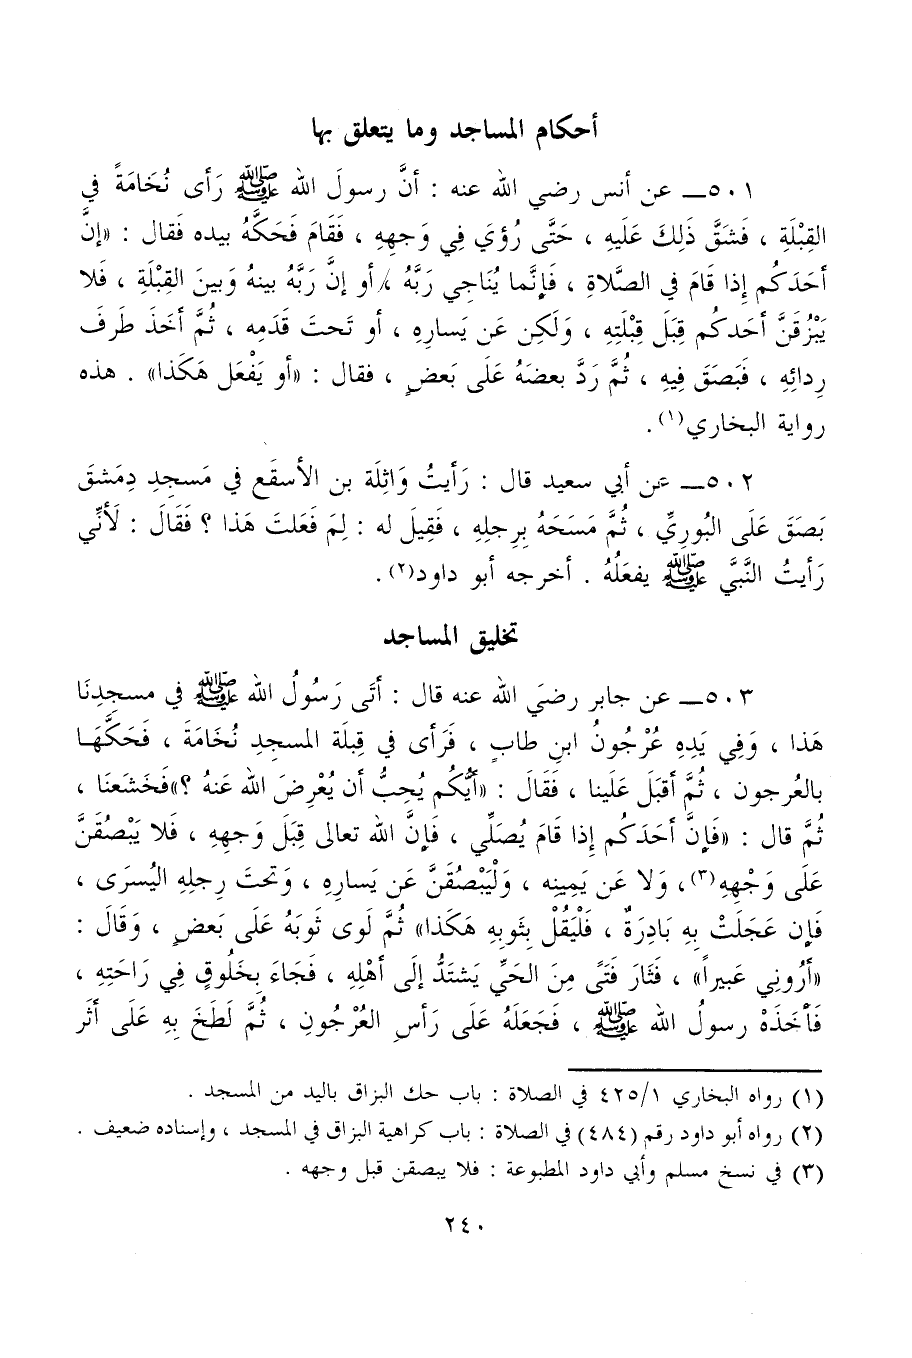 أحكام المساجد وما يتعلق بها
٥٠١ـ عن أنس رضي الله عنه : أنَّ رسولَ الله ﷺ رَأى نُخَامَةً في
القِبْلَةِ ، فَشَقَّ ذَلِكَ عَلَيهِ ، حَتَّى رُؤيَ فِي وَجهِهِ ، فَقَامَ فَحَكَّهُ بيده فَقال : «إنَّ
أحَدَكُم إذا قامَ في الصَّلاةِ ، فَإنَّما يُنَاجِي رَبَّهُ ، أو إنَّ رَبَّهُ بينهُ وَبينَ القِبْلَةِ ، فَلا
يَبْزُقَنَّ أحَدكُم قِبَلَ قِبْلَتِهِ ، وَلَكِن عَن يَسارِهِ ، أو تَحتَ قَدَمِه ، ثُمَّ أخَذَ طَرفَ
رِدائِهِ ، فَبَصَقَ فِيهِ ، ثُمَّ رَدَّ بعضَهُ عَلَى بَعضٍ ، فقال : «أو يَفْعَل هَكَذا» . هذه
رواية البخاري(١).
٥٠٢ـ عن أبي سعيد قال : رَأيتُ وَاثِلَة بن الأسقَعِ في مَسجِدِ دِمَشقَ
بَصَقَ عَلَى البُورِيِّ ، ثُمَّ مَسَحَهُ بِرِجلِهِ ، فَقِيلَ له : لِمَ فَعَلتَ هَذا ؟ فَقَالَ : لَأنِّي
رَأيتُ النَّبيَّ ﷺ يفعَلُهُ . أخرجه أبو داود(٢).
تخليق المساجد
٥٠٣ـ عن جابر رضيَ الله عنه قال : أتَى رَسُولُ الله ﷺ في مسجِدِنَا
هَذا ، وَفِي يَدِهِ عُرْجُونُ ابنِ طابٍ ، فَرَأى في قِبلَة المسجِدِ نُخَامَةَ ، فَحَكَّهَا
بالعُرجون ، ثُمَّ أقبَلَ عَلَينا ، فَقَالَ : «أيُّكُم يُحِبُّ أن يُعْرِضَ الله عَنهُ ؟»فَخَشَعنَا ،
ثُمَّ قال : «فَإنَّ أحَدَكُم إذا قَامَ يُصَلِّي ، فَإنَّ الله تعالى قِبَلَ وَجهِهِ ، فَلا يَبْصُقَنَّ
عَلَى وَجْهِهِ(٣)، وَلا عَن يَمِينِه ، وَلْيَبْصُقَنَّ عَن يَسارِه ، وَتَحتَ رِجلِهِ اليُسرَى ،
فَإن عَجَلَتْ بِهِ بَادِرَةٌ ، فَلْيَقُلْ بِثَوبِهِ هَكَذا» ثُمَّ لَوى ثَوبَهُ عَلَى بَعضٍ ، وَقَالَ :
«أرُوني عَبيراً» ، فَثَارَ فَتًى مِنَ الحَيِّ يَشتَدُّ إلَى أهْلِهِ ، فَجَاءَ بِخَلُوقٍ فِي رَاحَتِهِ ،
فَأخَذَهْ رسولُ الله ﷺ ، فَجَعَلَهُ عَلَى رَأسِ العُرْجُونِ ، ثُمَّ لَطَخَ بِهِ عَلَى أثَر
(١) رواه البخاري ٤٢٥/١ في الصلاة : باب حك البزاق باليد من المسجد .
(٢) رواه أبو داود رقم (٤٨٤) في الصلاة : باب كراهية البزاق في المسجد ، وإسناده ضعيف .
(٣) في نسخ مسلم وأبي داود المطبوعة : فلا يبصقن قبل وجهه .
٢٤٠